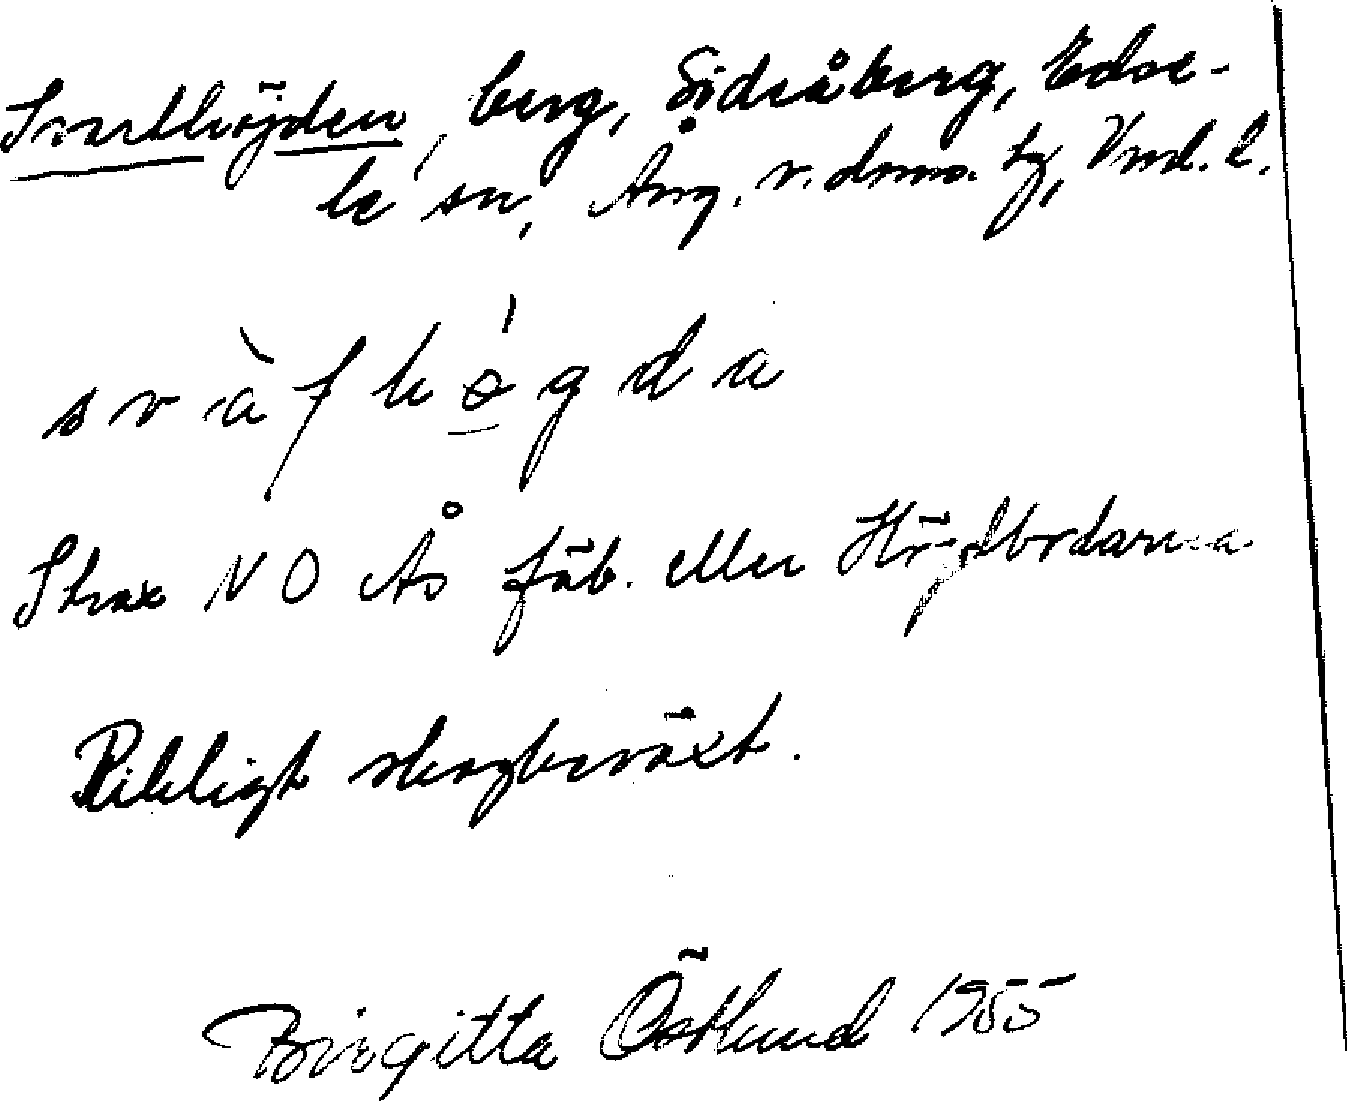 Svarthöjden, berg, Sidsåberg, Edse-
le sn, Ång. v. doms. tg, Vnd. l.
svàfhǿgda
Strax NO Ås fäb. eller Höjdbodarna
Rikligt skogbeväxt.
Birgitta Östlund 1955